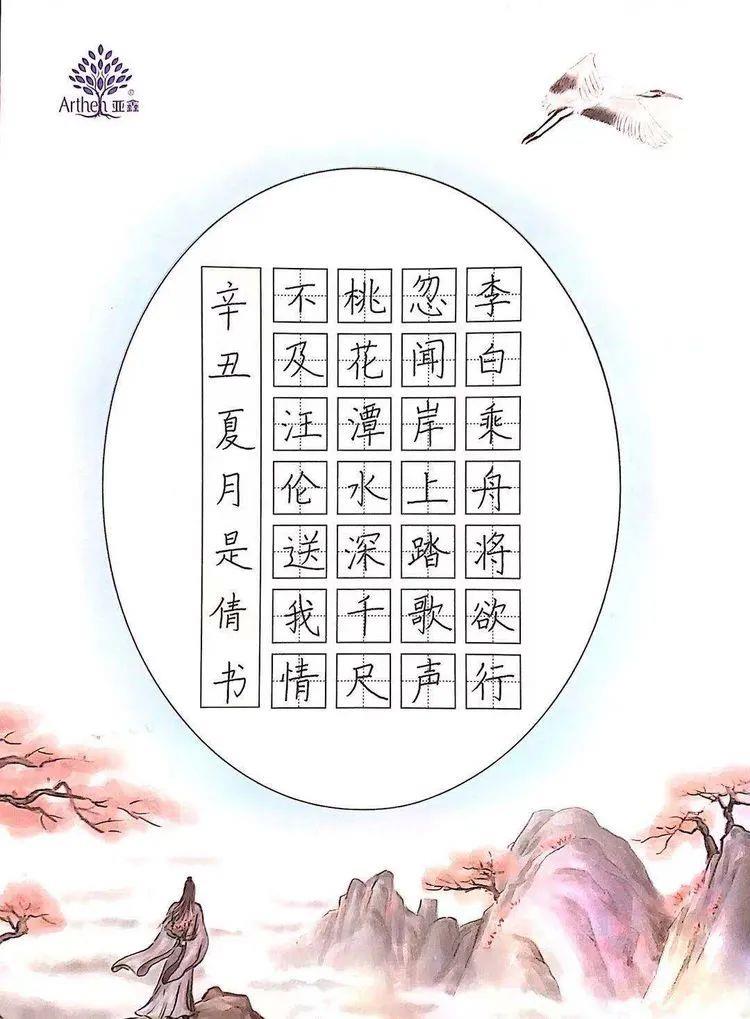 Arthen 亚鑫
李白乘舟将欲行
忽闻岸上踏歌声
桃花潭水深千尺
不及汪伦送我情
辛丑夏月是倩书